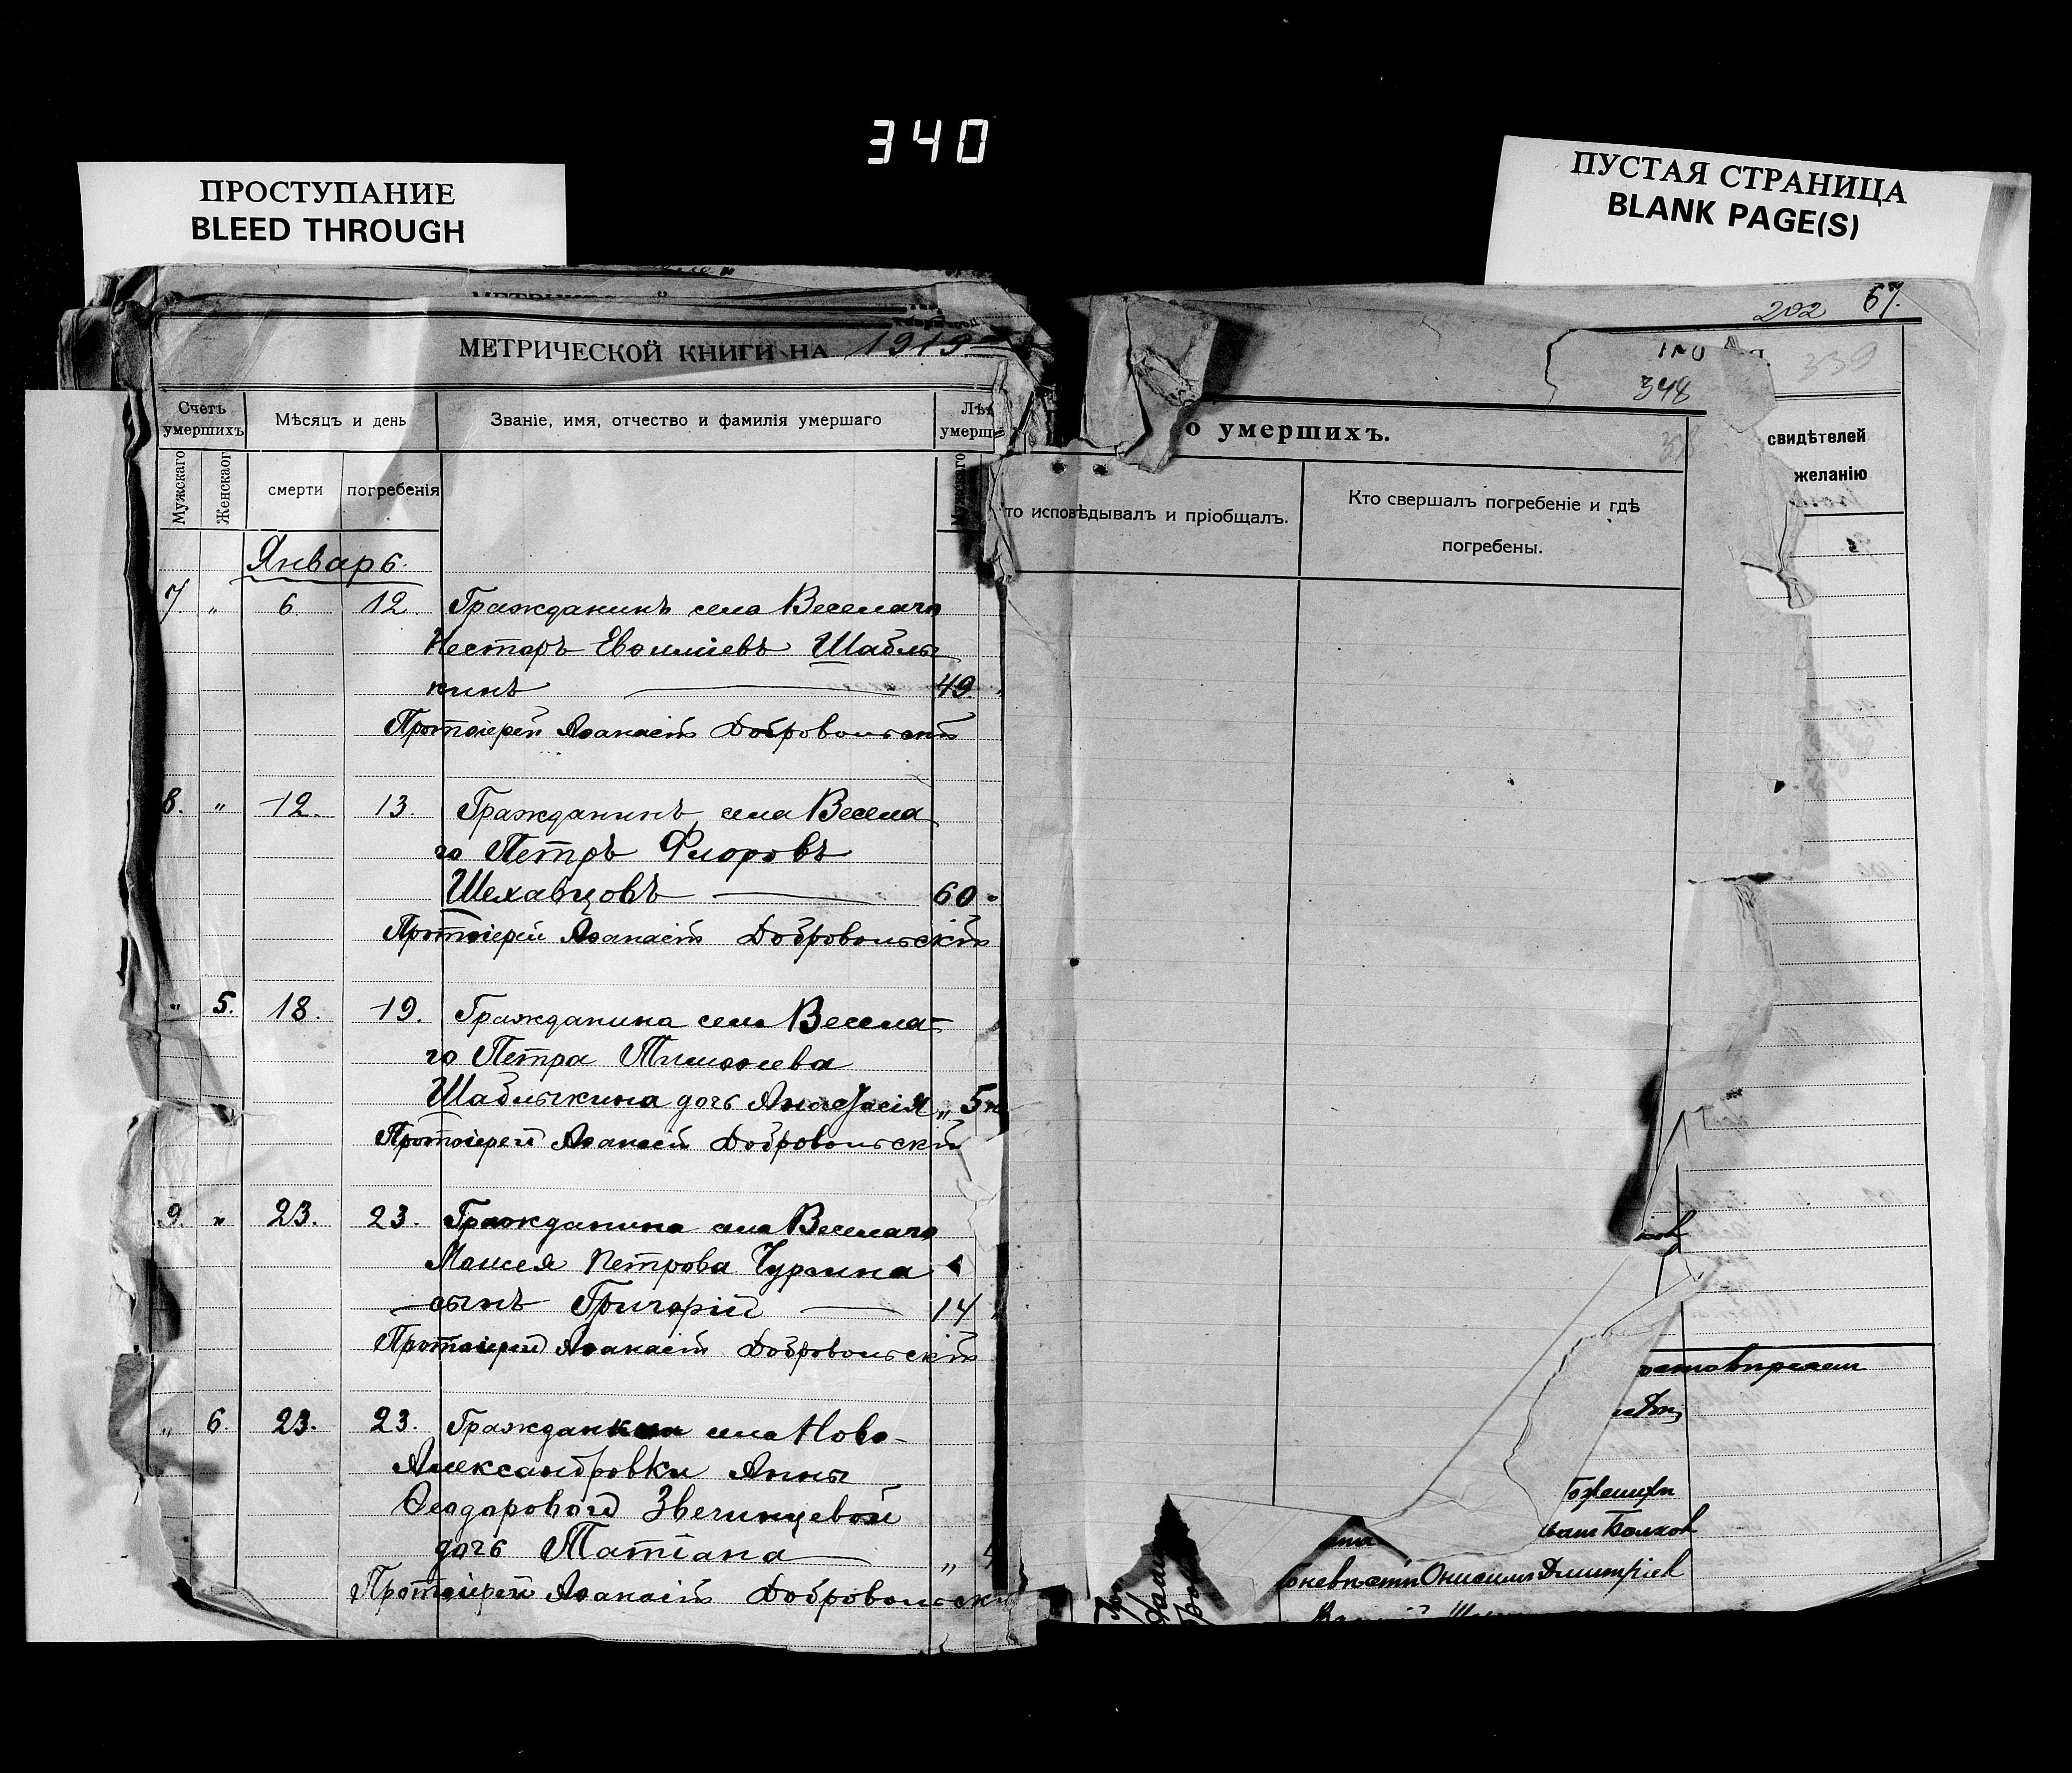 340
ПРОСТУПАНИЕ
BLEED THROUGH
ПУСТАЯ СТРАНИЦА
BLANK PAGE(S)
МЕТРИЧЕСКОЙ КНИГИ НА 1919
Счетъ умершихъ
Мѣсяцъ и день
Званіе, имя, отчество и фамилія умершаго
Мужскаго
Женскаог
смерти
погребенія
Мужскаго
Январь.
7 " 6. 12. Гражданинъ села Веселаго
Несторъ Евфиміевъ Шаблы
кинъ 49.
Протоіерей Аѳанасій Добровольскій
8. " 12. 13. Гражданинъ села Весела
го Петръ Флоровъ
Шехавцовъ 60 "
Протоіерей Аѳанасій Добровольскій
" 5. 18. 19. Гражданина села Весела=
го Петра Тимоѳеева
Шаблыкина дочь Анастасія " 5
Протоіерей Аѳанасій Добровольскій
9. " 23. 23. Гражданина села Веселаго
Моисея Петрова Чурсина
сынъ Григорій 14
Протоіерей Аѳанасій Добровольскій
" 6. 23. 23. Гражданки села Ново-
Александровки Анны
Ѳеодоровой Звегинцевой
дочь Татіана "
Протоіерей Аѳанасій Добровольскій
202 67.
339
348
о умершихъ.
свидѣтелей
желанію
то исповѣдывалъ и пріобщалъ.
Кто свершалъ погребеніе и гдѣ
погребены.
Онисимъ Дмитріев